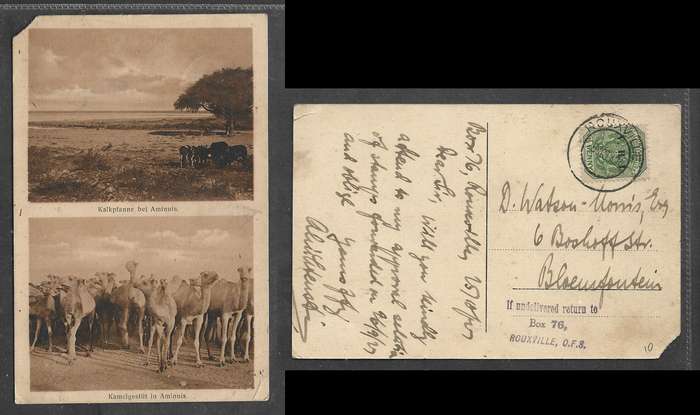 Kalkpfanne bei Aminuis.
Kamelgestüt in Aminuis.
Box 76, Rouxville,
Dear Sir, Will you kindly
attend to my approval selection
of stamps forwarded on
and oblige
yours ffy
ROUXVILLE
D. Watson-Morris, Esq
6 Boshoff Str.
Bloemfontein
If undelivered return to
Box 76,
ROUXVILLE, O.F.S.
10